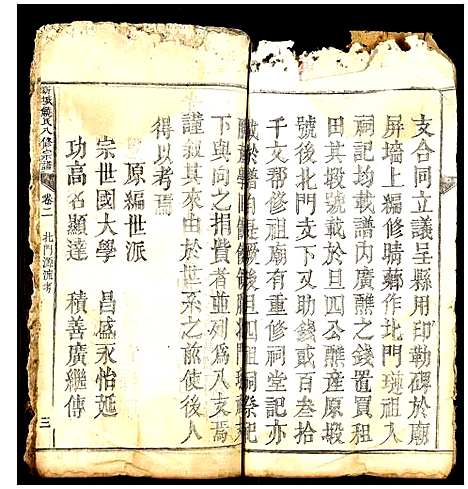 支合同立議呈縣用印勒碑於廟
屏墻上編修晴 作北門 祖人
祠記均載譜內廣醮之錢置買租
田其塅號載於旦四公醮產原塅
號後北門支下又助錢或百叁拾
千文帮修祖廟有重修祠堂記亦
載於譜 後 四祖祠 祀
下與向之捐費者並列為八支焉
謹叙其來由於世系之前使後人
得以考焉
原編世派
宗世國大學 昌盛永怡延
功高名顯達 積善廣繼傳
氏八修宗譜 卷二 北門源流考 三